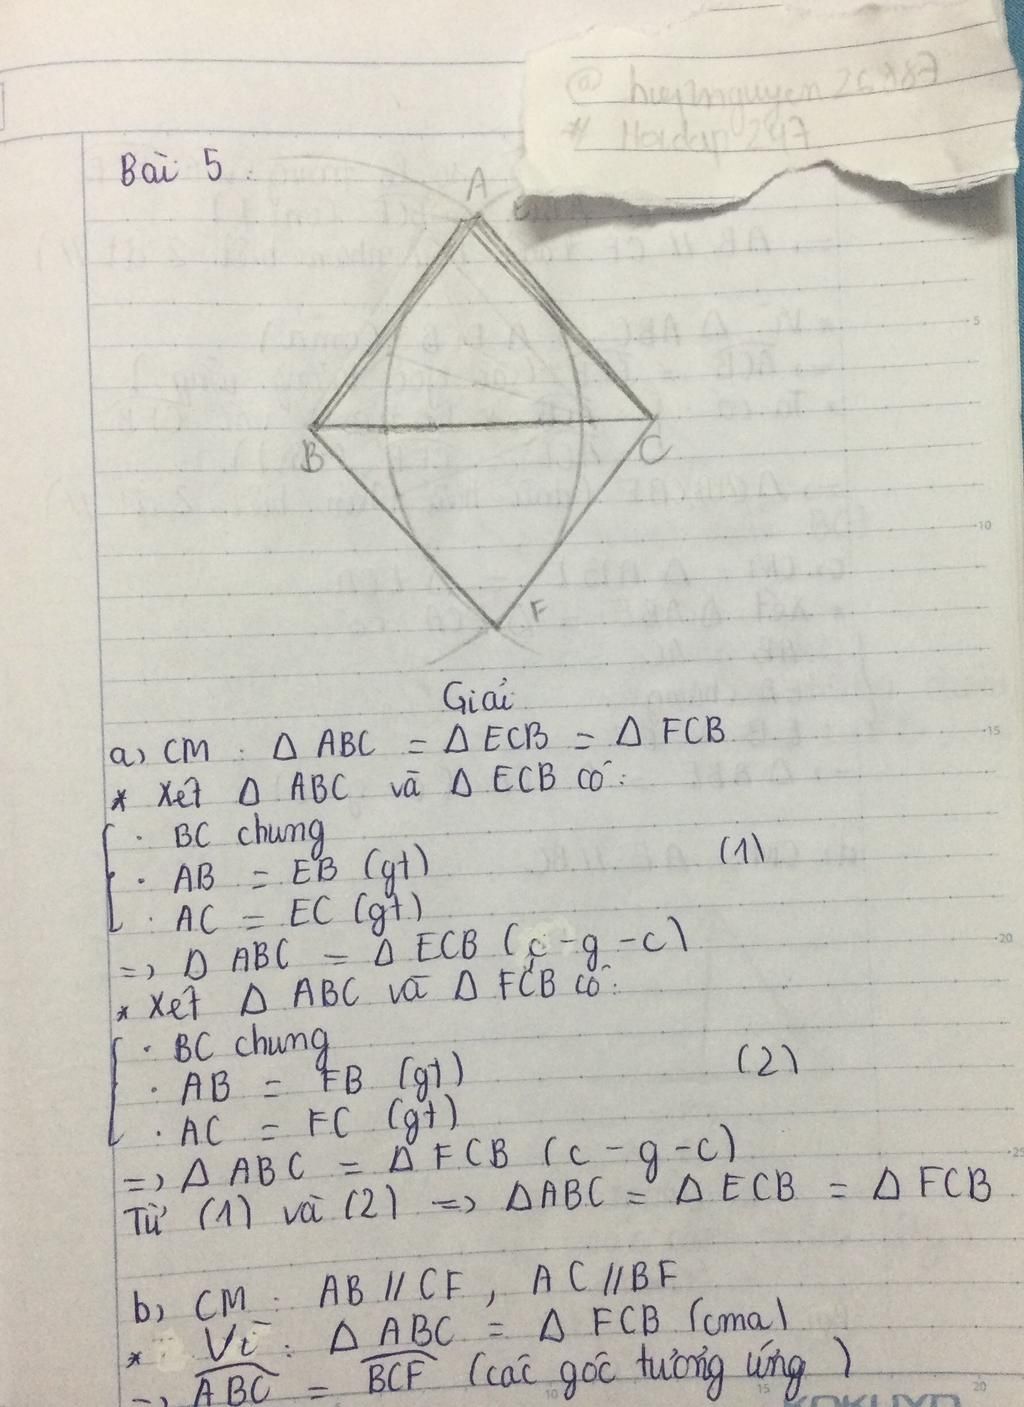 @ hiepnguyen26887
# Hoidap 247
Bài 5:
A
B
C
F
Giải
a, CM: Δ ABC = Δ ECB = Δ FCB
* Xét Δ ABC và Δ ECB có:
· BC chung
· AB = EB (gt) (1)
· AC = EC (gt)
=> Δ ABC = Δ ECB (c-g-c)
* Xét Δ ABC và Δ FCB có:
· BC chung
· AB = FB (gt) (2)
· AC = FC (gt)
=> Δ ABC = Δ FCB (c-g-c)
Từ (1) và (2) => ΔABC = Δ ECB = Δ FCB
b, CM: AB // CF, AC // BF
* Vì: Δ ABC = Δ FCB (cma)
=> ABC = BCF (các góc tương ứng)
5
10
15
20
25
10 15 20
KOKUYO